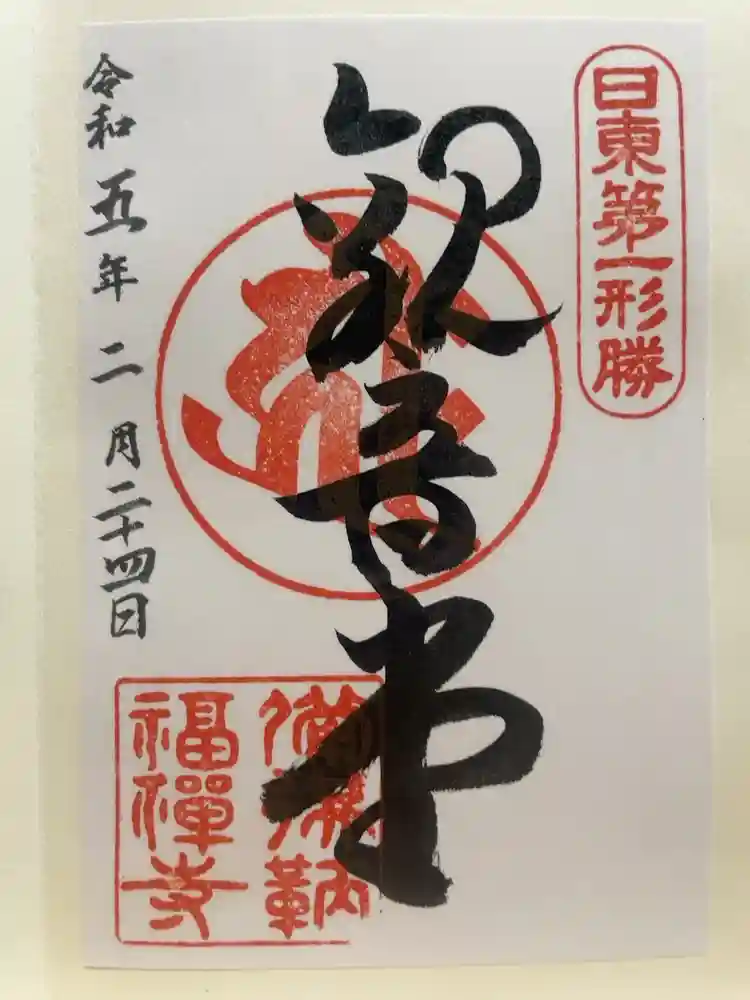 日東第一形勝
観音堂
令和五年二月二十四日
備後鞆
福禅寺